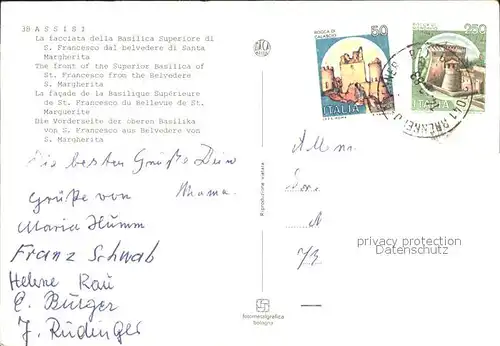 38 ASSISI
La facciata della Basilica Superiore di
S. Francesco dal belvedere di Santa
Margherita
The front of the Superior Basilica of
St. Francesco from the Belvedere
S. Margherita
La façade de la Basilique Supérieure
de St. Francesco du Bellevue de St.
Marguerite
Die Vorderseite der oberen Basilika
von S. Francesco aus Belvedere von
S. Margherita
Die besten Grüße Dein
Mama.
Grüße von
Maria Humm
Franz Schwab
Helene Rau
E. Bürger
J. Rüdinger
Riproduzione vietata
fotometalgrafica
bologna
ROCCA DI
CALASCIO
50
ITALIA
ROCCA DI
250
ITALIA
privacy protection
Datenschutz